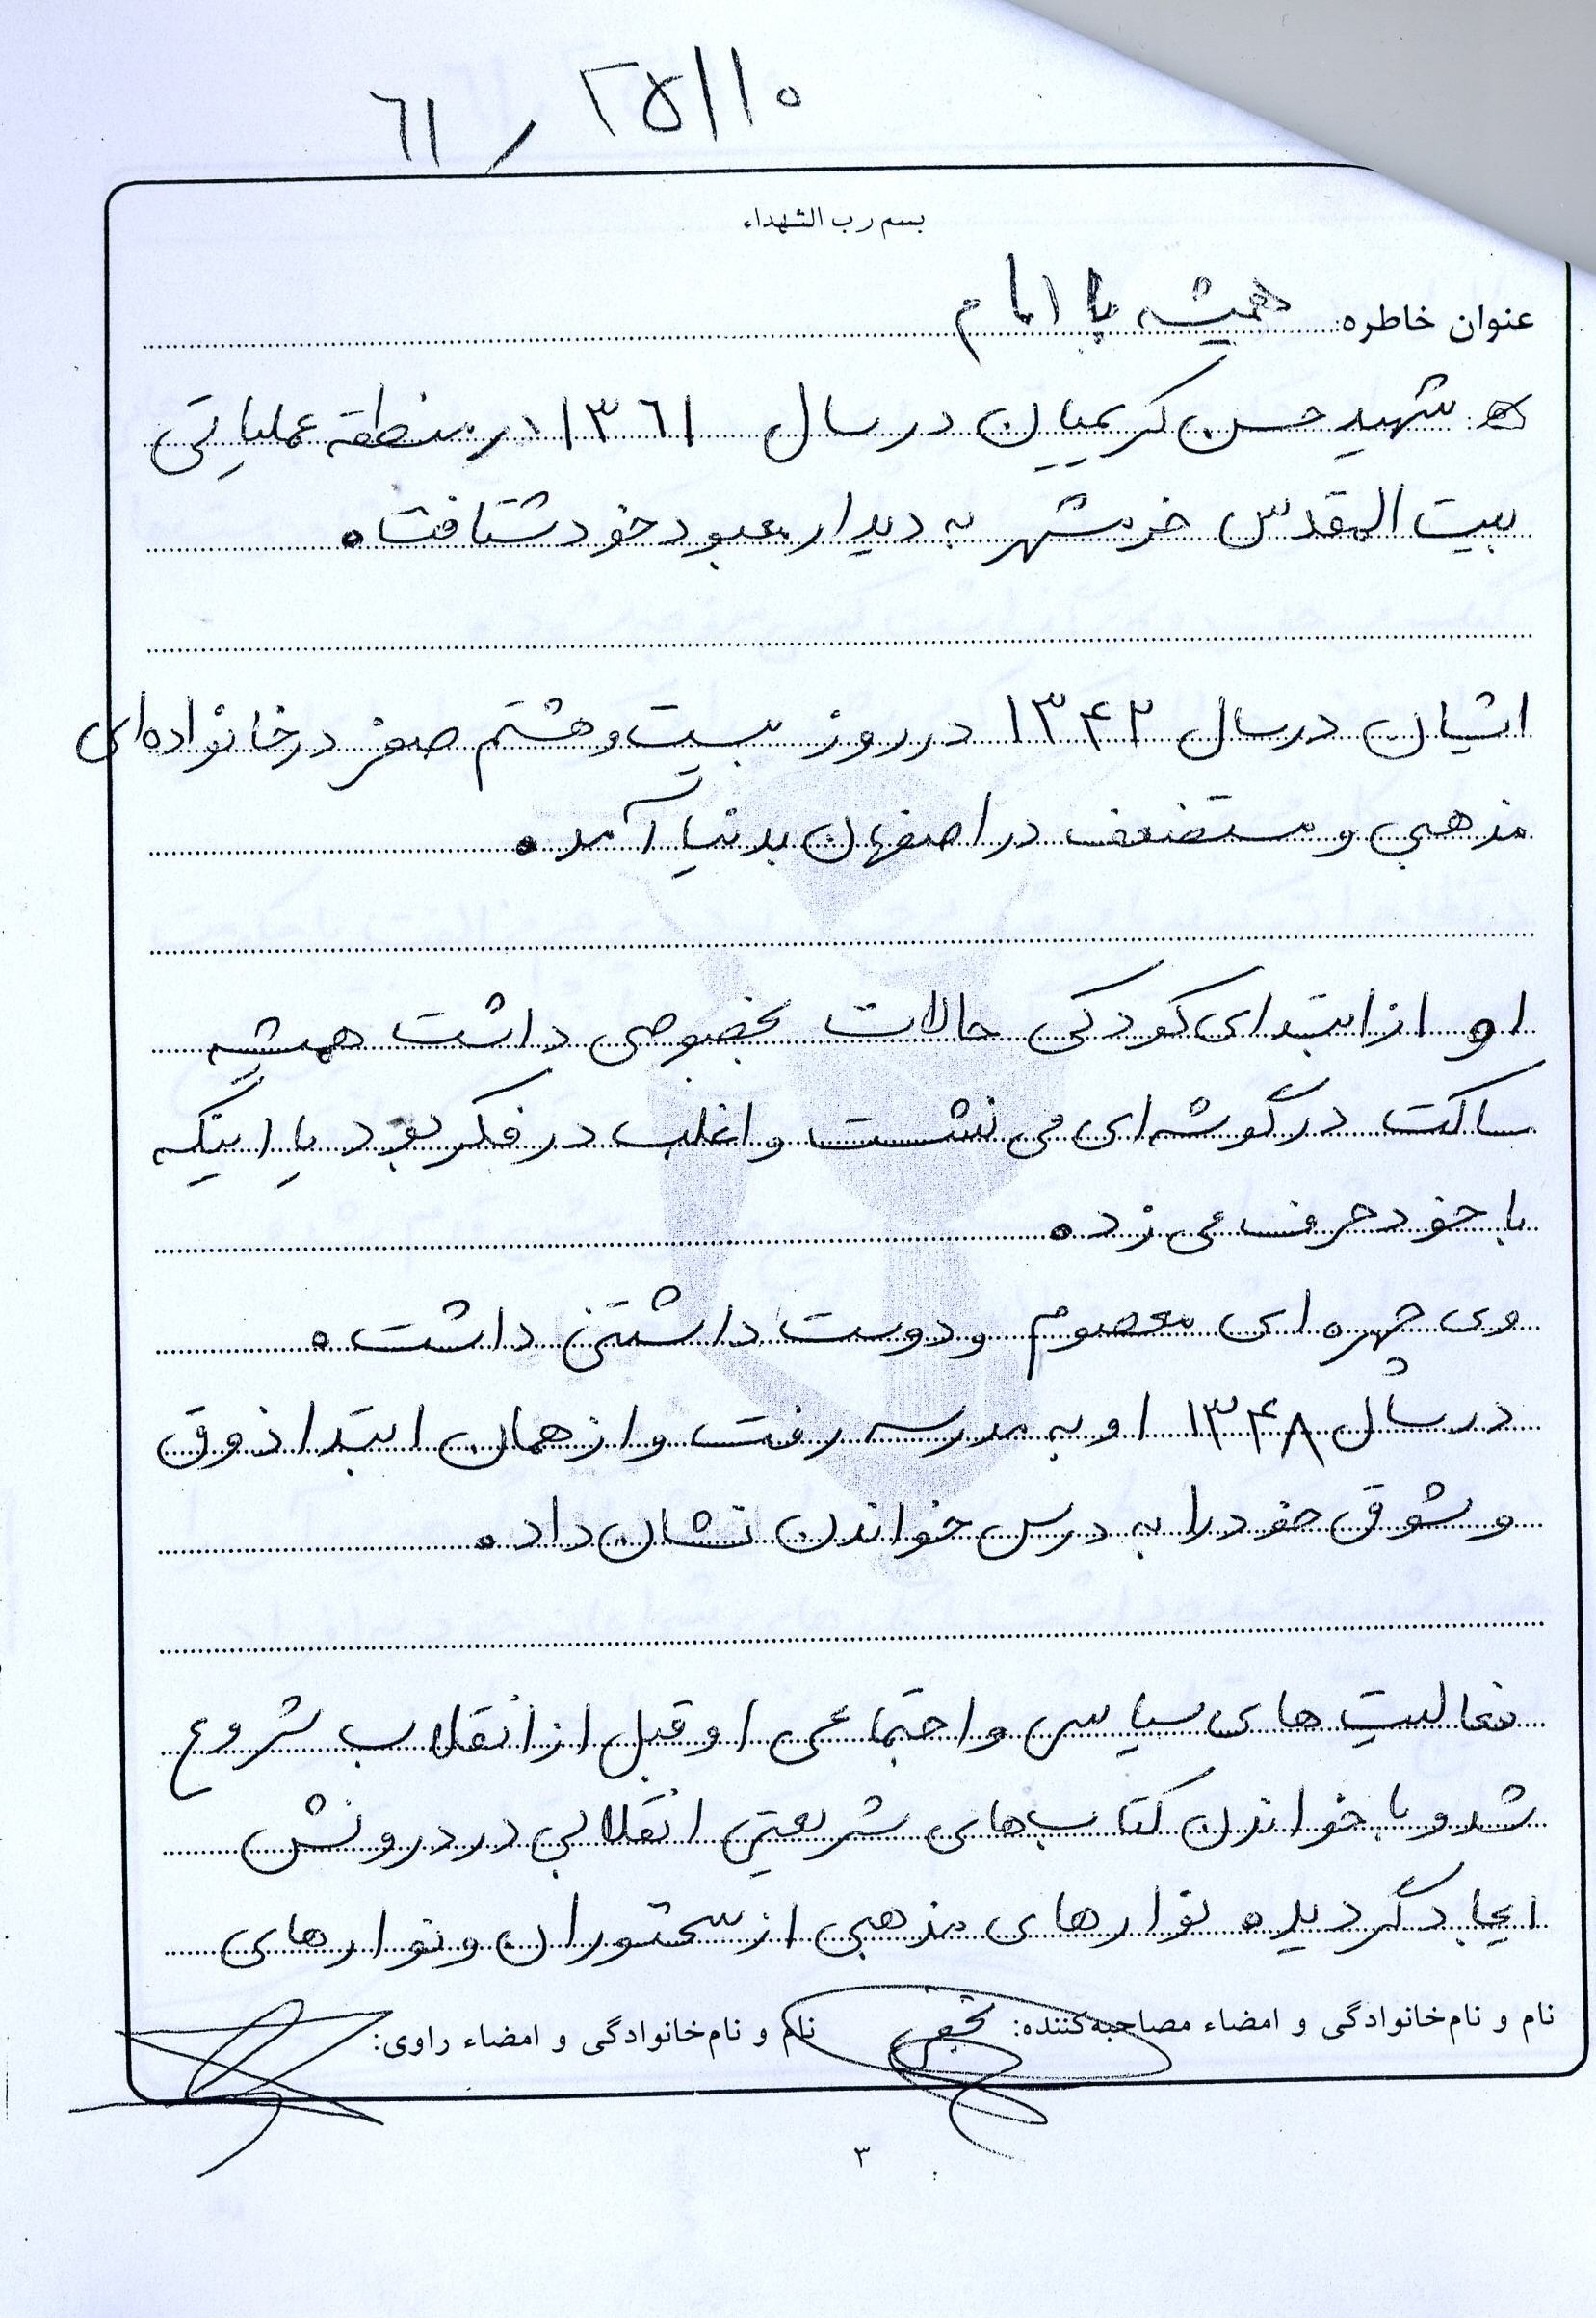 ۶۱ / ۲۵۱۱۰
بسم رب الشهداء
عنوان خاطره: همیشه با امام
شهید حسن کریمیان در سال ۱۳۶۱ در منطقه عملیاتی
بیت المقدس خرمشهر به دیدار معبود خود شتافت.
ایشان در سال ۱۳۴۲ در روز بیست و هشتم صفر در خانواده ای
مذهبی و مستضعف در اصفهان بدنیا آمد.
او از ابتدای کودکی حالات بخصوصی داشت همیشه
ساکت در گوشه ای می نشست و اغلب در فکر بود یا اینکه
با خود حرف می زد.
وی چهره ای معصوم و دوست داشتنی داشت.
در سال ۱۳۴۸ او به مدرسه رفت و از همان ابتدا ذوق
و شوق خود را به درس خواندن نشان داد.
فعالیت های سیاسی و اجتماعی او قبل از انقلاب شروع
شد و با خواندن کتاب های شریعتی انقلابی در درونش
ایجاد گردید. نوارهای مذهبی از سخنوران و نوارهای
نام و نام‌خانوادگی و امضاء مصاحبه‌کننده: نام و نام‌خانوادگی و امضاء راوی:
۳